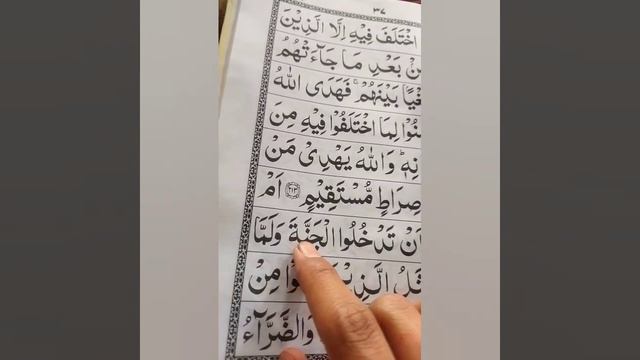 ٣٧
اخْتَلَفَ فِيْهِ اِلَّا الَّذِيْنَ
مِنْۢ بَعْدِ مَا جَآءَتْهُمُ
بَغْيًاۢ بَيْنَهُمْ ۚ فَهَدَى اللّٰهُ
لِمَا اخْتَلَفُوْا فِيْهِ مِنَ
وَاللّٰهُ يَهْدِيْ مَنْ
صِرَاطٍ مُّسْتَقِيْمٍ ﴿٢١٣﴾ اَمْ
اَنْ تَدْخُلُوا الْجَنَّةَ وَلَمَّا
الَّذِيْنَ مِنْ
وَالضَّرَّآءُ